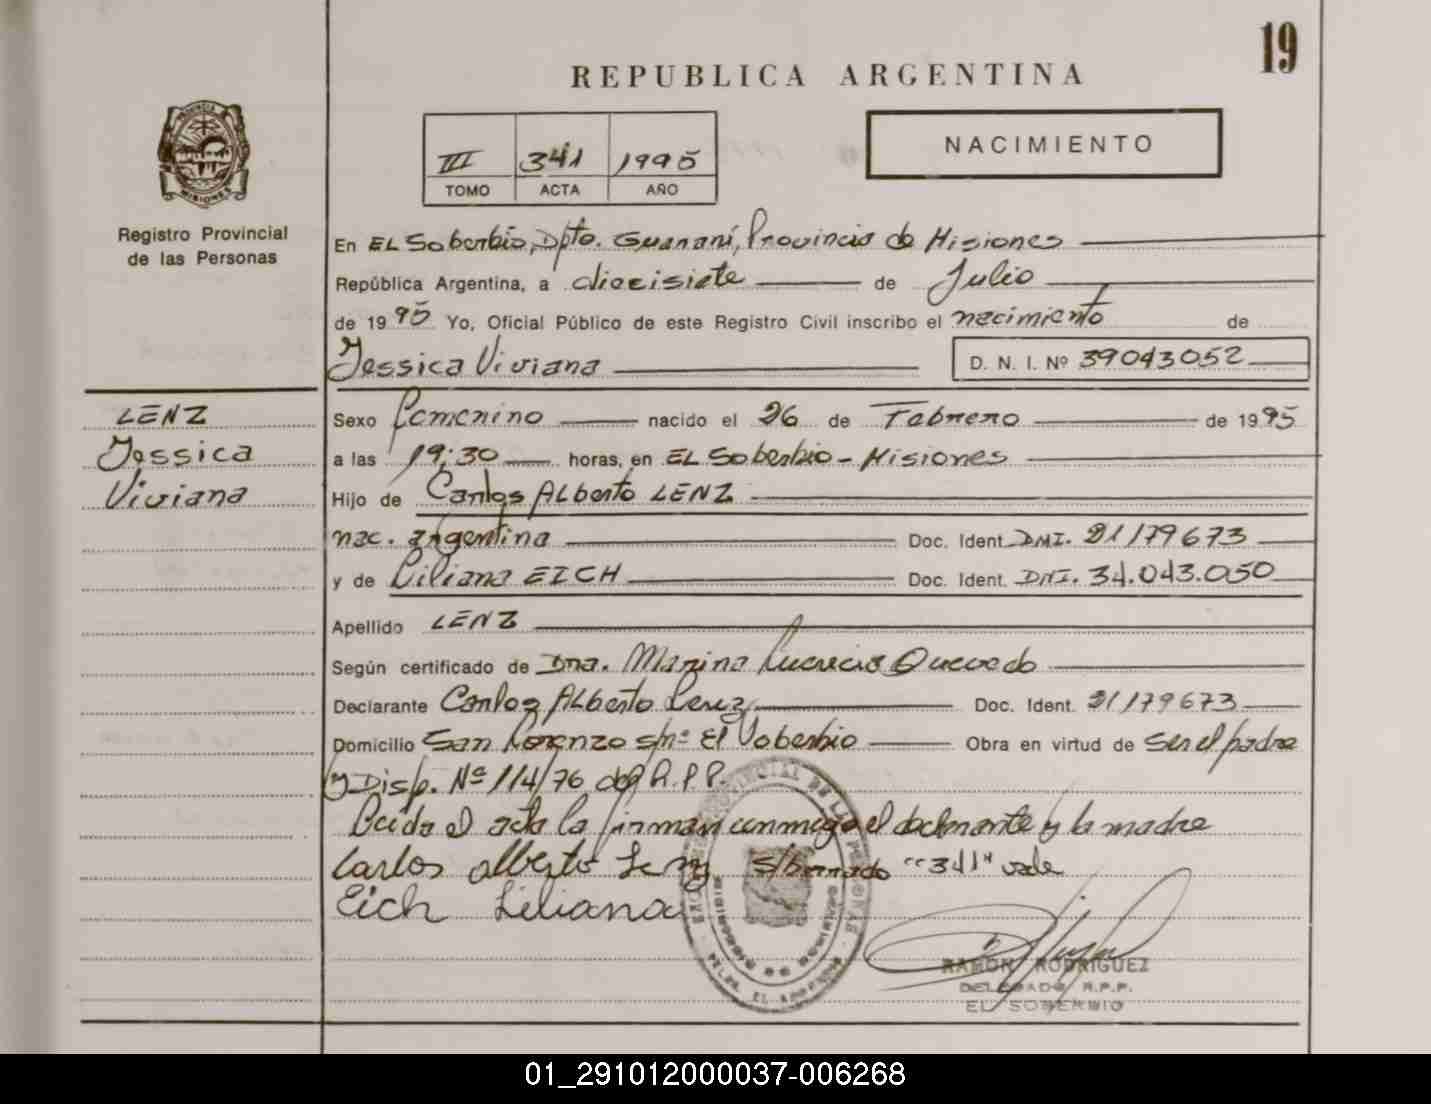 19
REPUBLICA ARGENTINA
III 341 1995
TOMO ACTA AÑO
NACIMIENTO
PROVINCIA
MISIONES
Registro Provincial
de las Personas
LENZ
Jessica
Viviana
En EL Soberbio, Dpto. Guaraní, Provincia de Misiones
República Argentina, a diecisiete de Julio
de 1995 Yo, Oficial Público de este Registro Civil inscribo el nacimiento de
Jessica Viviana D. N. I. Nº 39043052
Sexo femenino nacido el 26 de Febrero de 1995
a las 19:30 horas, en EL Soberbio - Misiones
Hijo de Carlos Alberto LENZ
nac. argentina Doc. Ident. DNI. 21179673
y de Liliana EICH Doc. Ident. DNI. 34.043.050
Apellido LENZ
Según certificado de Dra. Marina Lucrecia Quevedo
Declarante Carlos Alberto Lenz Doc. Ident. 21179673
Domicilio San Lorenzo s/nº El Soberbio Obra en virtud de ser el padre
y Disp. Nº 114/76 del R.P.P.
Leida el acta la firman conmigo el declarante y la madre
Carlos alberto Lenz s/borrado "341" vale
Eich Liliana
RAMON RODRIGUEZ
DELEGADO R.P.P.
EL SOBERBIO
01_291012000037-006268